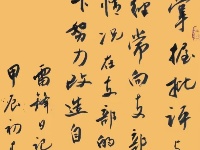 掌握批评
经常向支部
情况在支部的
下努力改造自
雷锋日记
甲辰初